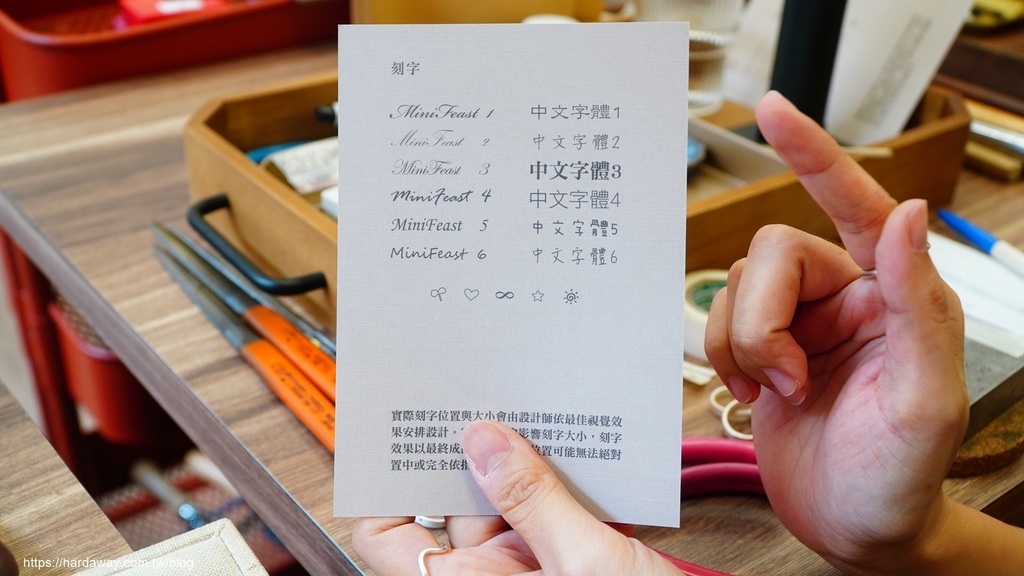 刻字
MiniFeast 1 中文字體1
MiniFeast 2 中文字體2
MiniFeast 3 中文字體3
MiniFeast 4 中文字體4
MiniFeast 5 中文字體5
MiniFeast 6 中文字體6
實際刻字位置與大小會由設計師依最佳視覺效
果安排設計，影響刻字大小，刻字
效果以最終成位置可能無法絕對
置中或完全依
https://hardaway.com.tw/blog